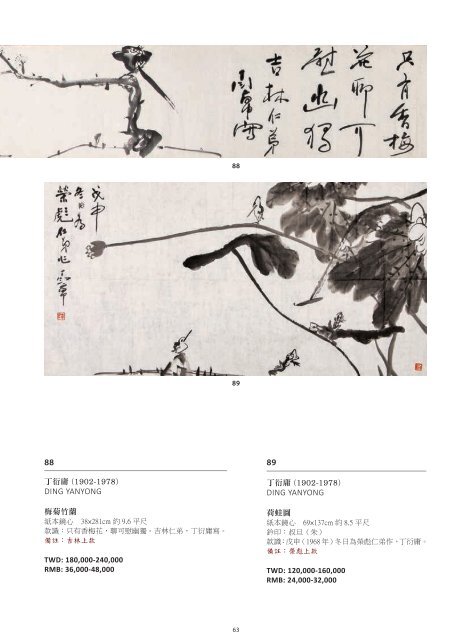 只有香梅
花聊可
慰幽獨
吉林仁弟
丁衍庸寫
88
戊申
冬日為
榮彪仁弟作
丁衍庸
89
88
丁衍庸 (1902-1978)
DING YANYONG
梅菊竹蘭
紙本鏡心 38x281cm 約 9.6 平尺
款識：只有香梅花，聊可慰幽獨。吉林仁弟，丁衍庸寫。
備註：吉林上款
TWD: 180,000-240,000
RMB: 36,000-48,000
89
丁衍庸 (1902-1978)
DING YANYONG
荷蛙圖
紙本鏡心 69x137cm 約 8.5 平尺
鈐印：叔旦（朱）
款識：戊申（1968 年）冬日為榮彪仁弟作，丁衍庸。
備註：榮彪上款
TWD: 120,000-160,000
RMB: 24,000-32,000
63